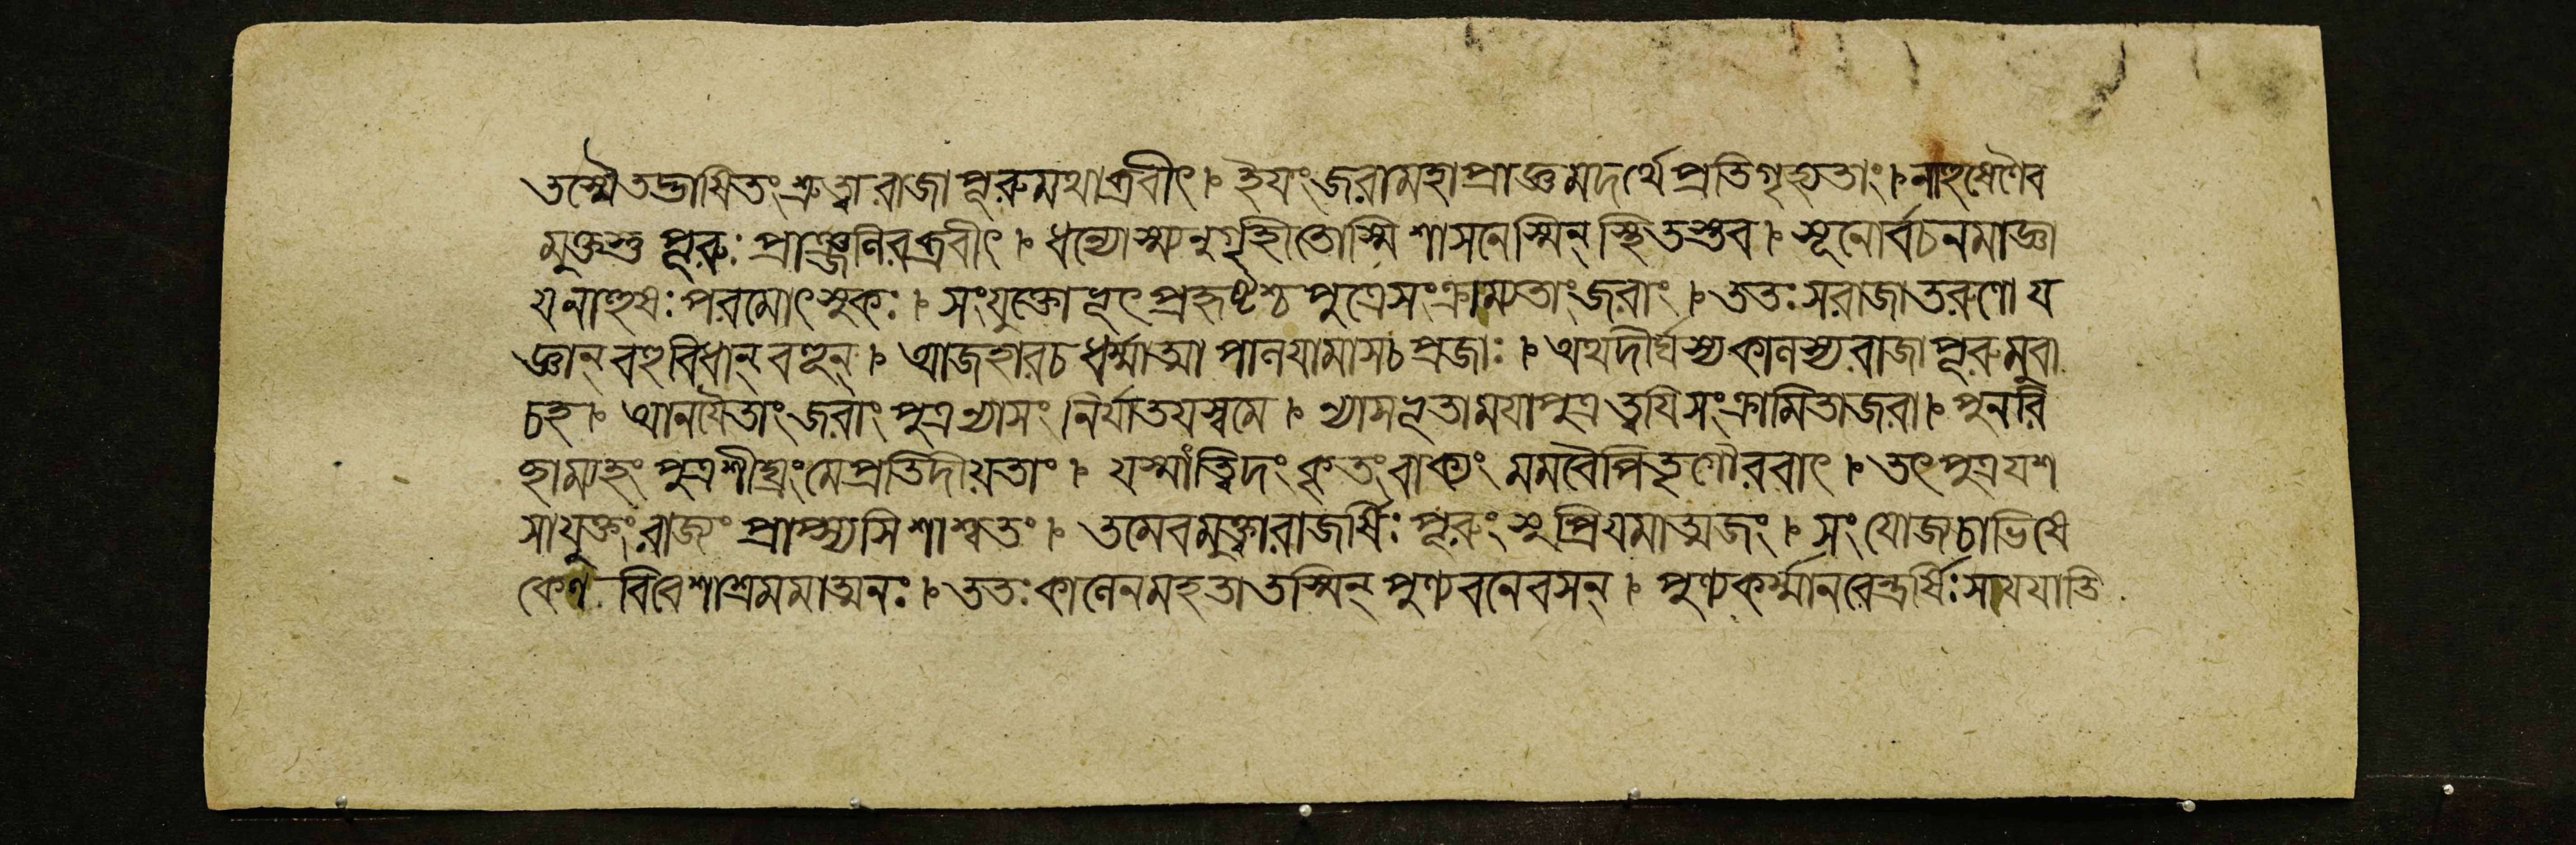 তস্মৈতদ্ভাষিতং শ্রুত্বা রাজা পূরুমথাব্রবীৎ । ইয়ং জরা মহাপ্রাজ্ঞ মদর্থে প্রতিগৃহ্যতাং । নাহুষেণৈব
মুক্তস্তু পূরুঃ প্রাঞ্জলিরব্রবীৎ । ধন্যোস্ম্যনুগৃহীতোস্মি শাসনেস্মিন্ স্থিতস্তব । সূনোর্বচনমাজ্ঞা
য নাহুষঃ পরমোৎসুকঃ । সংযুক্তোভূৎ প্রহৃষ্টশ্চ পুত্রে সংক্রাম্যতাং জরাং । ততঃ স রাজা তরুণো য
জ্ঞান্ বহুবিধান্ বহূন্ । আজহার চ ধর্ম্মাত্মা পালয়ামাস চ প্রজাঃ । অথ দীর্ঘস্য কালস্য রাজা পূরুমুবা
চ হ । আনয়ৈতাং জরাং পুত্র ন্যাসং নির্যাতয়স্ব মে । ন্যাসভূতা ময়া পুত্র ত্বয়ি সংক্রামিতা জরা । পুনরি
হাম্যহং পুত্র শীঘ্রং মে প্রতিদীয়তাং । যস্মাত্ত্বিদং কৃতং বাক্যং মম বৈ পিতৃগৌরবাৎ । তৎ পুত্র যশ
সা যুক্তং রাজ্যং প্রাপ্স্যসি শাশ্বতং । তমেবমুক্ত্বা রাজর্ষিঃ পূরুং সুপ্রিয়মাত্মজং । সংযোজ্য চাভিষে
কেণ বিবেশাশ্রমমাত্মনঃ । ততঃ কালেন মহতা তস্মিন্ পুণ্যবনে বসন্ । পুণ্যকর্ম্মা নরেন্দ্রর্ষিঃ সাথ যাতি